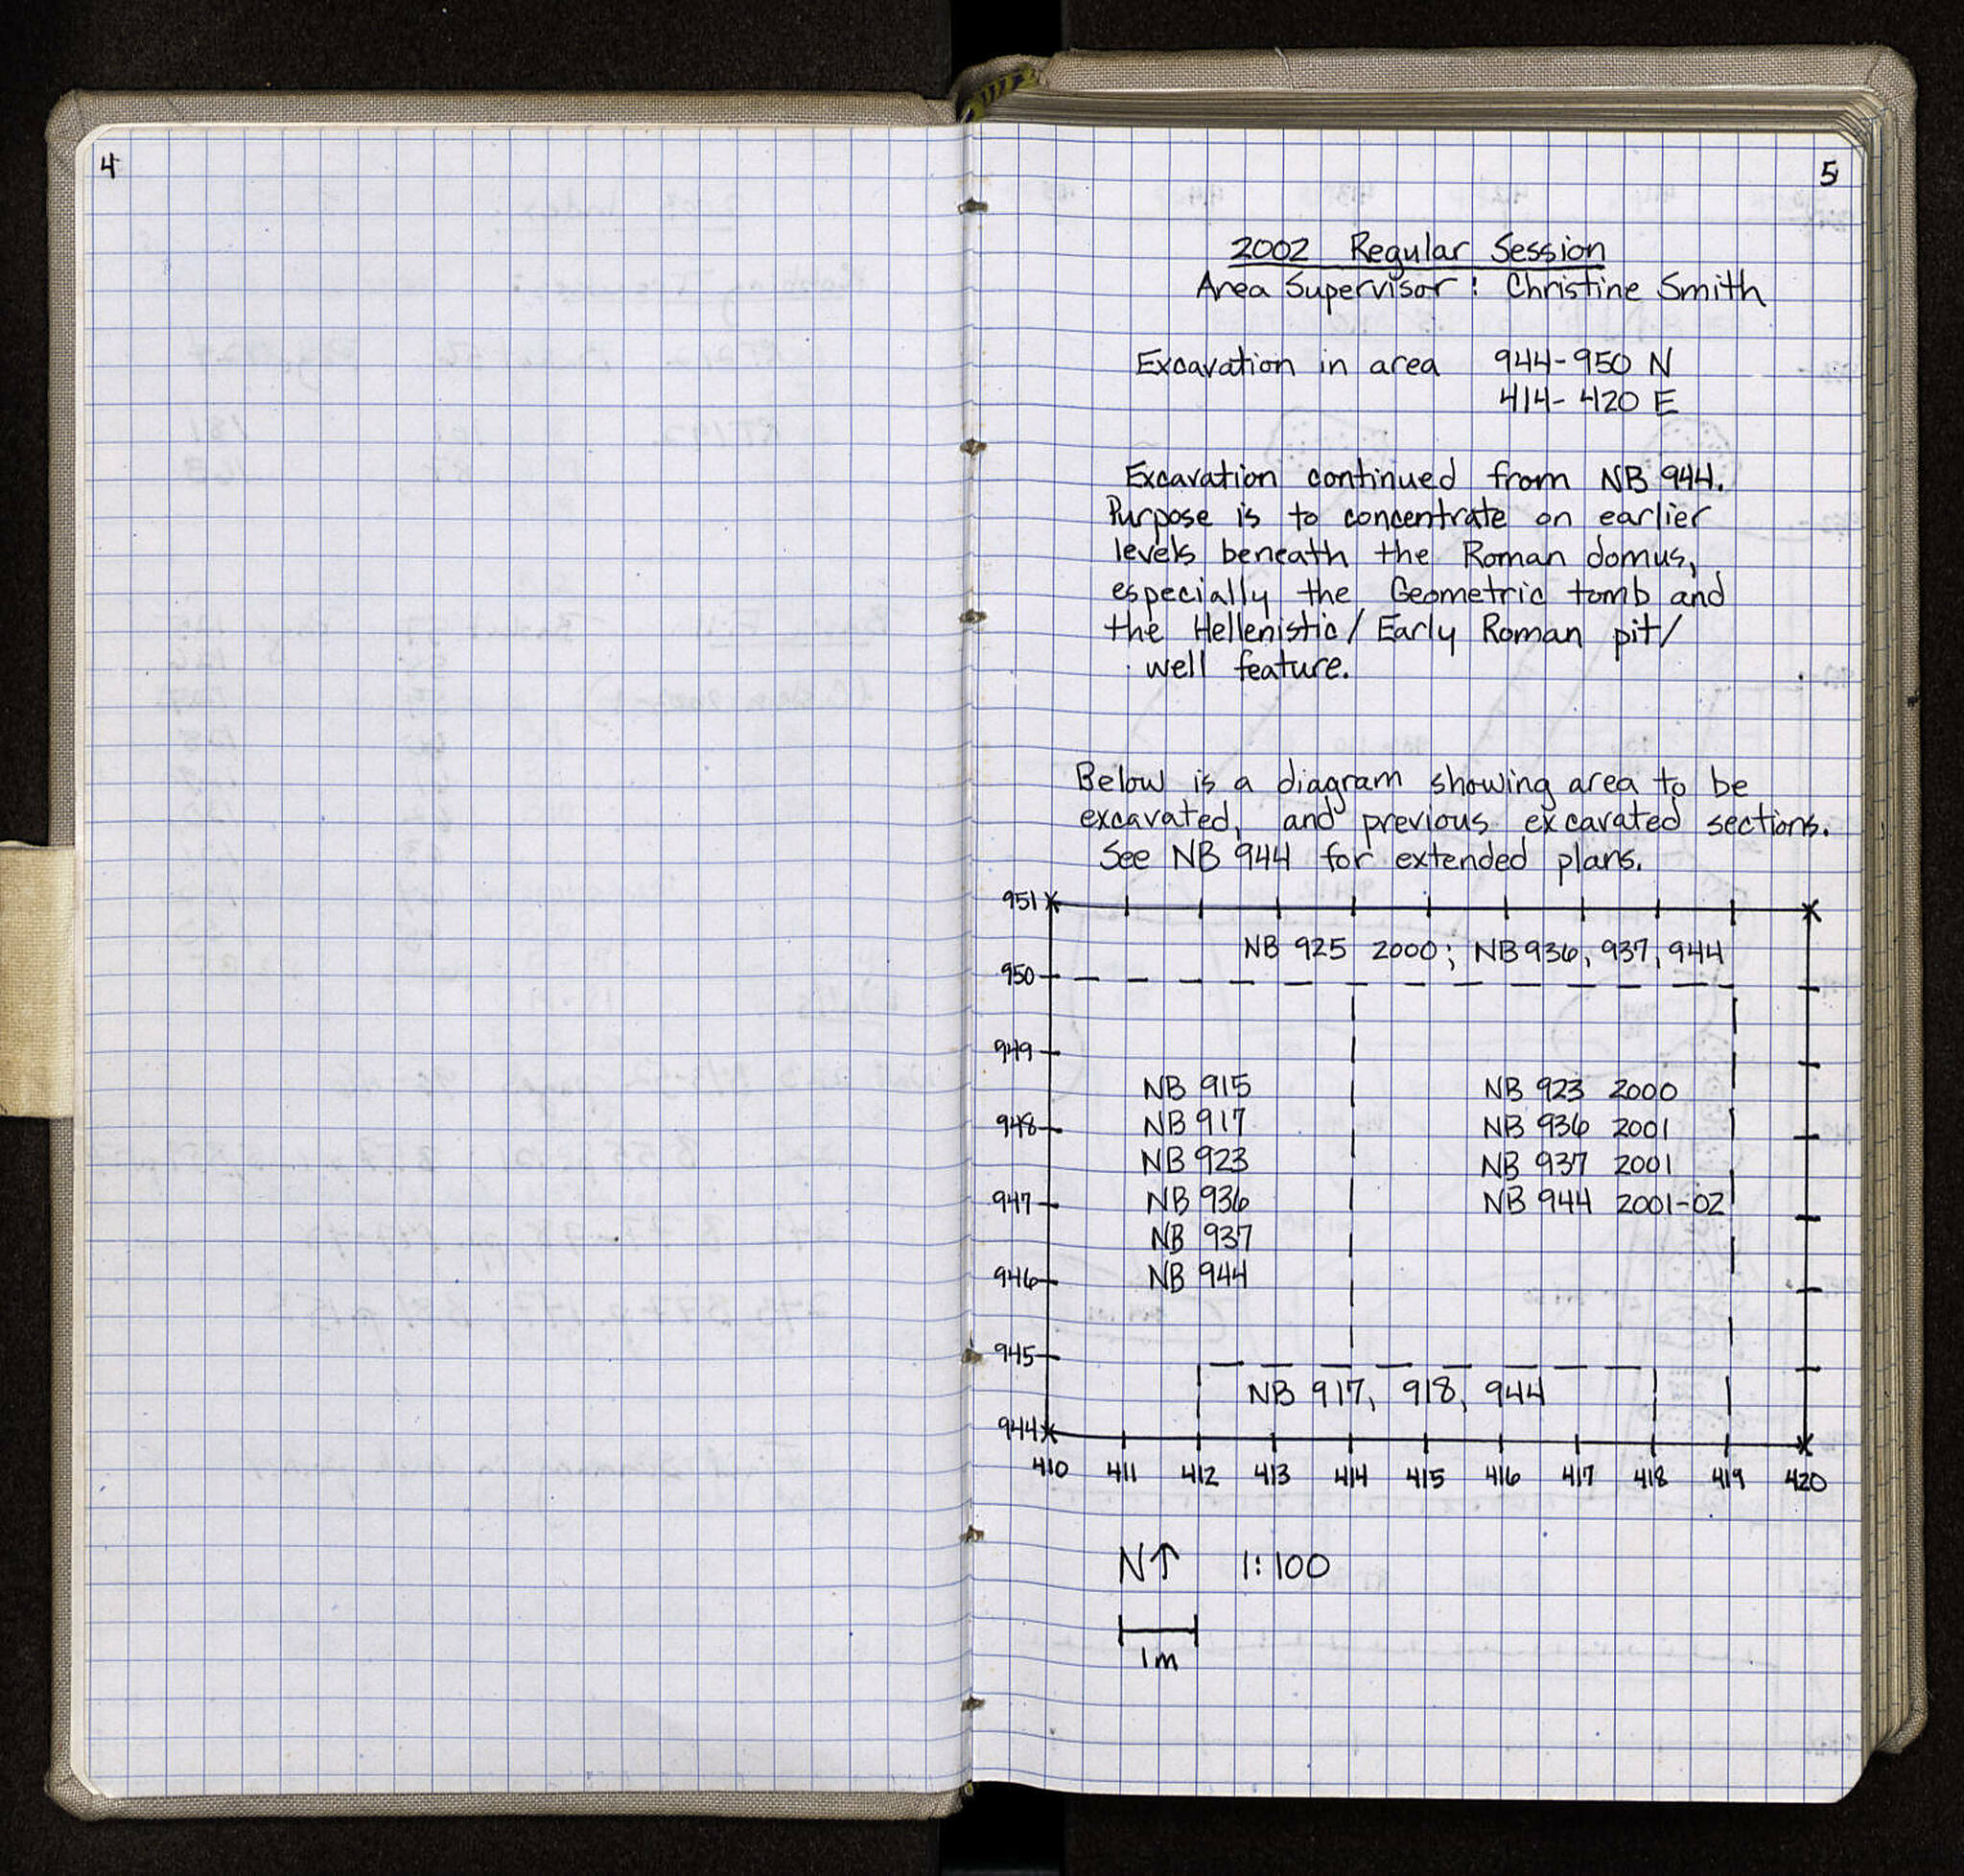 4
5
2002 Regular Session
Area Supervisor: Christine Smith
Excavation in area 944-950 N
414-420 E
Excavation continued from NB 944.
Purpose is to concentrate on earlier
levels beneath the Roman domus,
especially the Geometric tomb and
the Hellenistic/Early Roman pit/
well feature.
Below is a diagram showing area to be
excavated, and previous excavated sections.
See NB 944 for extended plans.
951
NB 925 2000; NB 936, 937, 944
950
949
NB 915 NB 923 2000
948 NB 917 NB 936 2001
NB 923 NB 937 2001
947 NB 936 NB 944 2001-02
NB 937
946 NB 944
945
NB 917, 918, 944
944
410 411 412 413 414 415 416 417 418 419 420
N↑ 1:100
1m